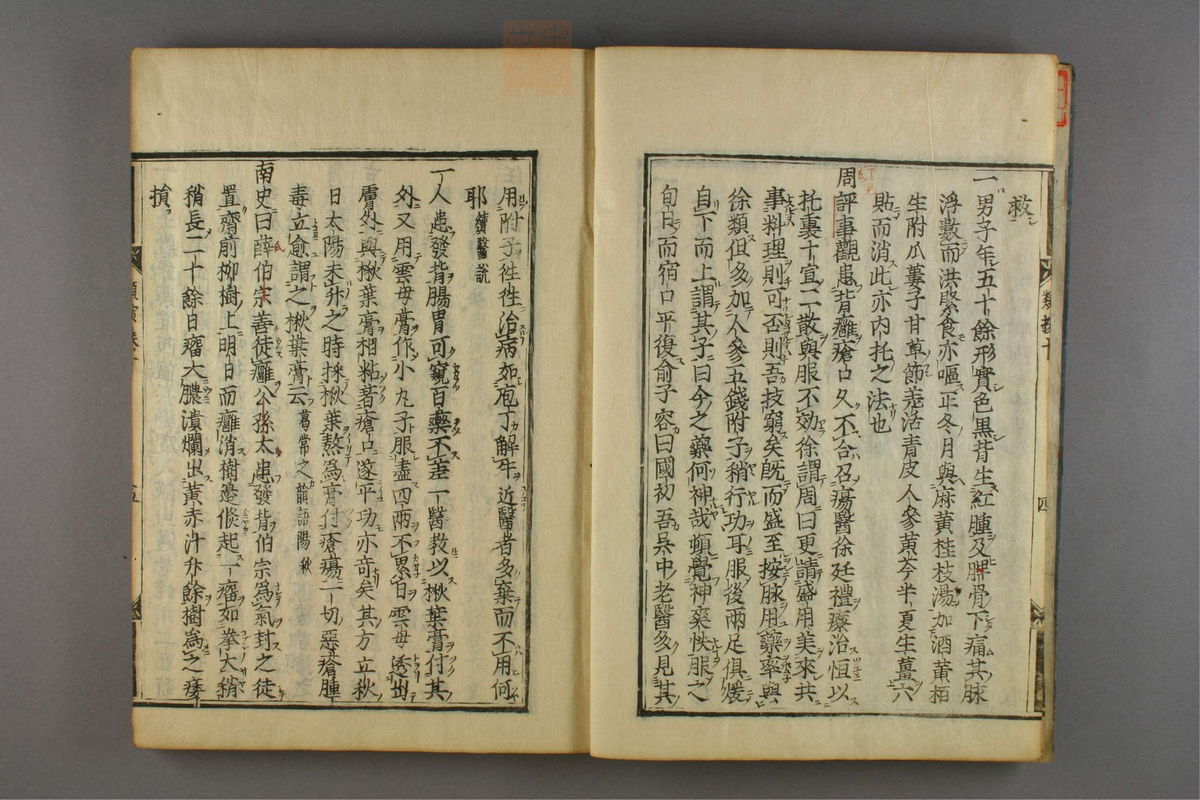 救
一男子年五十餘形實色黒背生紅腫及胛骨下痛其脉
浮數而洪緊食亦嘔正冬月與麻黄桂枝湯加酒黄栢
生附瓜蔞子甘草節羌活青皮人參黄芩半夏生薑六
貼而消此亦内托之法也
周評事觀患背癰瘡口久不合召瘍醫徐廷禮療治恒以
托裏十宣二散與服不効徐謂周曰更請盛用美來共
事料理則可否則吾技窮矣既而盛至按脉用藥率與
徐類但多加人參五錢附子稍行功耳服後兩足俱煖
自下而上謂其子曰今之藥何神哉頓覺神爽快服之
旬日而宿口平復俞子容曰國初吾呉中老醫多見其
類案 十
四
用附子徃徃治病如庖丁解牛近醫者多棄而不用何
耶 續醫説
一人患發背腸胃可窺百藥不差一醫教以楸葉膏付其
外又用雲母膏作小丸子服盡四兩不累日雲母透出
膚外與楸葉膏相粘著瘡口遂平功亦竒矣其方立秋
日太陽未升之時採楸葉熬為膏付瘡瘍一切惡瘡腫
毒立愈謂之楸葉膏云 葛常之韻語陽秋
南史曰薛伯宗善徒癰公孫太患發背伯宗為氣封之徒
置齋前柳樹上明日而癰消樹邉倐起一瘤如拳大稍
稍長二十餘日瘤大膿潰爛出黄赤汁升餘樹為之痿
損